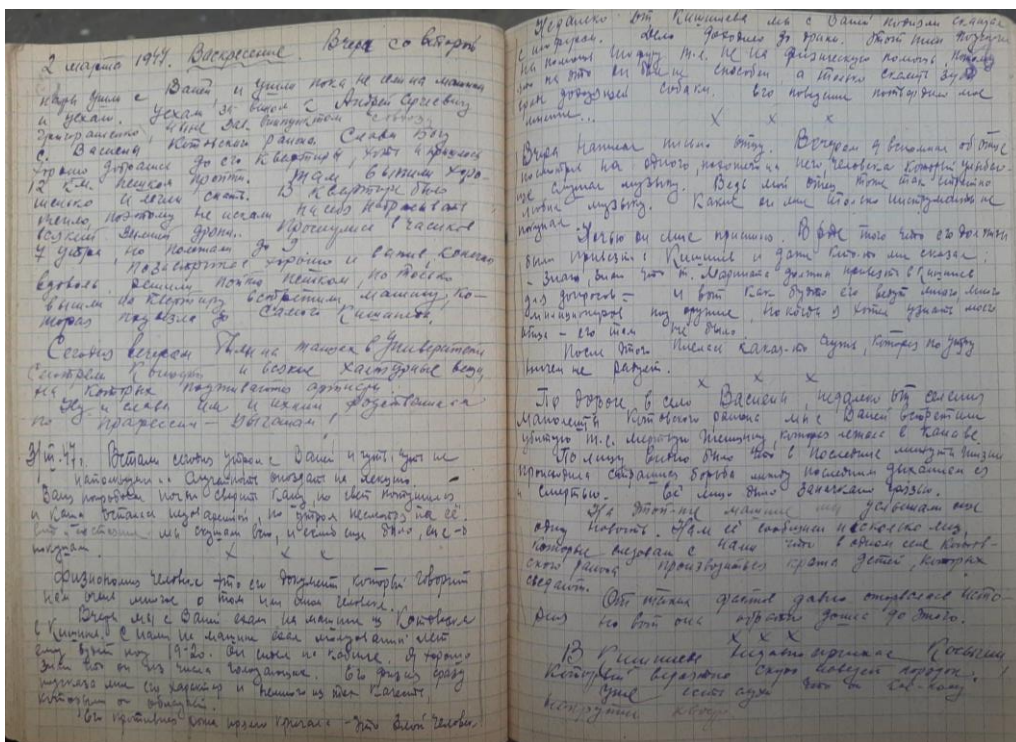 2 марта 1947. Воскресение. Вчера со второй
пары ушли с Ваней, и ушло пока не сели на машину
и уехали. Уехали за вином к Андрей Сергеевичу
Григоращенко, ныне зав. винпунктом
с. Василеи, Котовского района. Слава Богу
хорошо добрались до его квартиры, хоть и пришлось
12 км. пешком пройти. Там выпили хоро-
шенько и легли спать. В квартире было
тепло, поэтому не искали на себя набрасывать
всякий зимний дрянь. Проснулись в часиков
7 утра, но полежали до 9.
Позавтракав хорошо и выпив, конечно
вдоволь, решили пойти пешком, но только
вышли на квартиру встретили машину, ко-
торая подвезла до самого Кишинева.
Сегодня вечером были на танцах в Университете
смотрели концерт и всякие халтурные вещи,
на которых подвизаются артисты.
Ну и слава им и ихним родственникам
по профессии – цыганам!
3/III-47 г. Встали сегодня утром с Ваней и чуть-чуть не
опоздать на лекцию.
Ваня попробовал сварить кашу но свет потушился
и каша осталась недоваренной, но утром несмотря на её
мы скушали её, и если еще было, еще-б
покушали.
х х х
Физиономия человека – это его документ который говорит
нам очень многое о том или ином человеке.
Вчера мы с Ваней ехали на машине из Котовска
в Кишинев. С нами на машине ехал молодой лет
ему будет под 19-20. Он сидел на кабине. Я хорошо
знал что он из числа голодающих. Его физия сразу
подсказала мне его характер и немного из тех качеств
которыми он обладает.
Его противная кожа прямо кричала – это злой человек.
Недалеко от Кишинева мы с Ваней подняли скандал
с шофером. Дело доходило до драки. Этот тип подбежал
на помощь шоферу т.е. не на физическую помощь, потому
что на это он был не способен, а только скалить зубы
собаки. Его поведение подтвердило мое
мнение...
х х х
Вчера написал письмо отцу. Вечером я вспомнил об отце
посмотрев на одного, похожего на него человека который
слушал музыку. Ведь мой отец тоже так
любил музыку. Какие он мне только инструменты не
покупал.
Ночью он мне приснился. Вроде того что его должны
были привезти в Кишинев и даже кто-то мне сказал:
– Знаю, знаю что т. должны привезти в Кишинев
для допросов – и вот как будто его ведут много, много
милиционеров под оружие, но когда я хотел узнать моего
отца – его там не было.
После этого какая-то чушь, которая по утру
ничем не радует.
х х х
По дороге в село Василеи, недалеко от селения
Манолешты Котовского района мы с Ваней встретили
убитую т.е. мертвую женщину которая лежала в канаве.
По лицу видно было что в последние минуты жизни
происходила страшная борьба между последним дыханием её
и смертью. Её лицо было запачкано грязью.
На этой-же машине мы услышали еще
одну новость. Нам её сообщили несколько лиц,
которые следовали с нами что в одном селе Котов-
ского района производится кража детей, которых
съедают.
От таких фактов давно оторвалась исто-
рия но вот она обратно дошла до этого.
х х х
В Кишинев недавно приехал Косыгин
который вероятно скоро наведет порядок.
Уже есть слухи что он кое-кому
накрутил хвост.